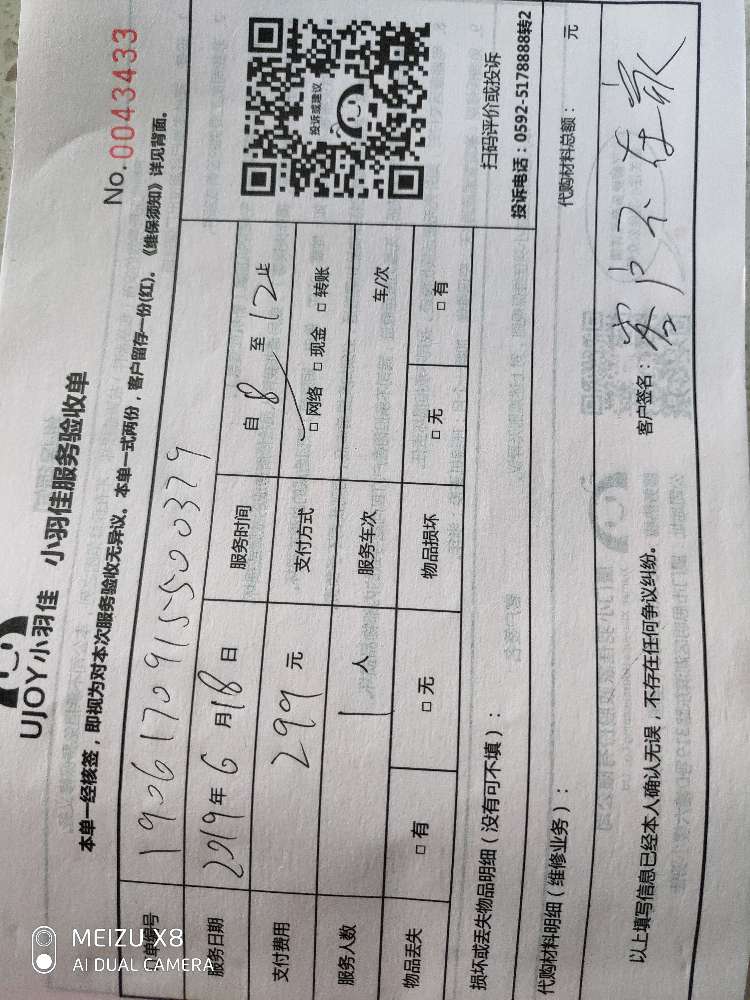 UJOY小羽佳 小羽佳服务验收单
No.0043433
本单一经核签，即视为对本次服务验收无异议。本单一式两份，客户留存一份(红)。《维保须知》详见背面。
单编号 190617091550037​9
服务日期 2019年6月18日 服务时间 自8至12止
支付费用 299元 支付方式 □网络 □现金 □转账
服务人数 1人 服务车次 车/次
物品丢失 □有 □无 物品损坏 □无 □有
投诉或建议
扫码评价或投诉
投诉电话：0592-5178888转2
损坏或丢失物品明细（没有可不填）：
代购材料明细（维修业务）： 代购材料总额： 元
以上填写信息已经本人确认无误，不存在任何争议纠纷。 客户签名：客户不在家
MEIZU X8
AI DUAL CAMERA